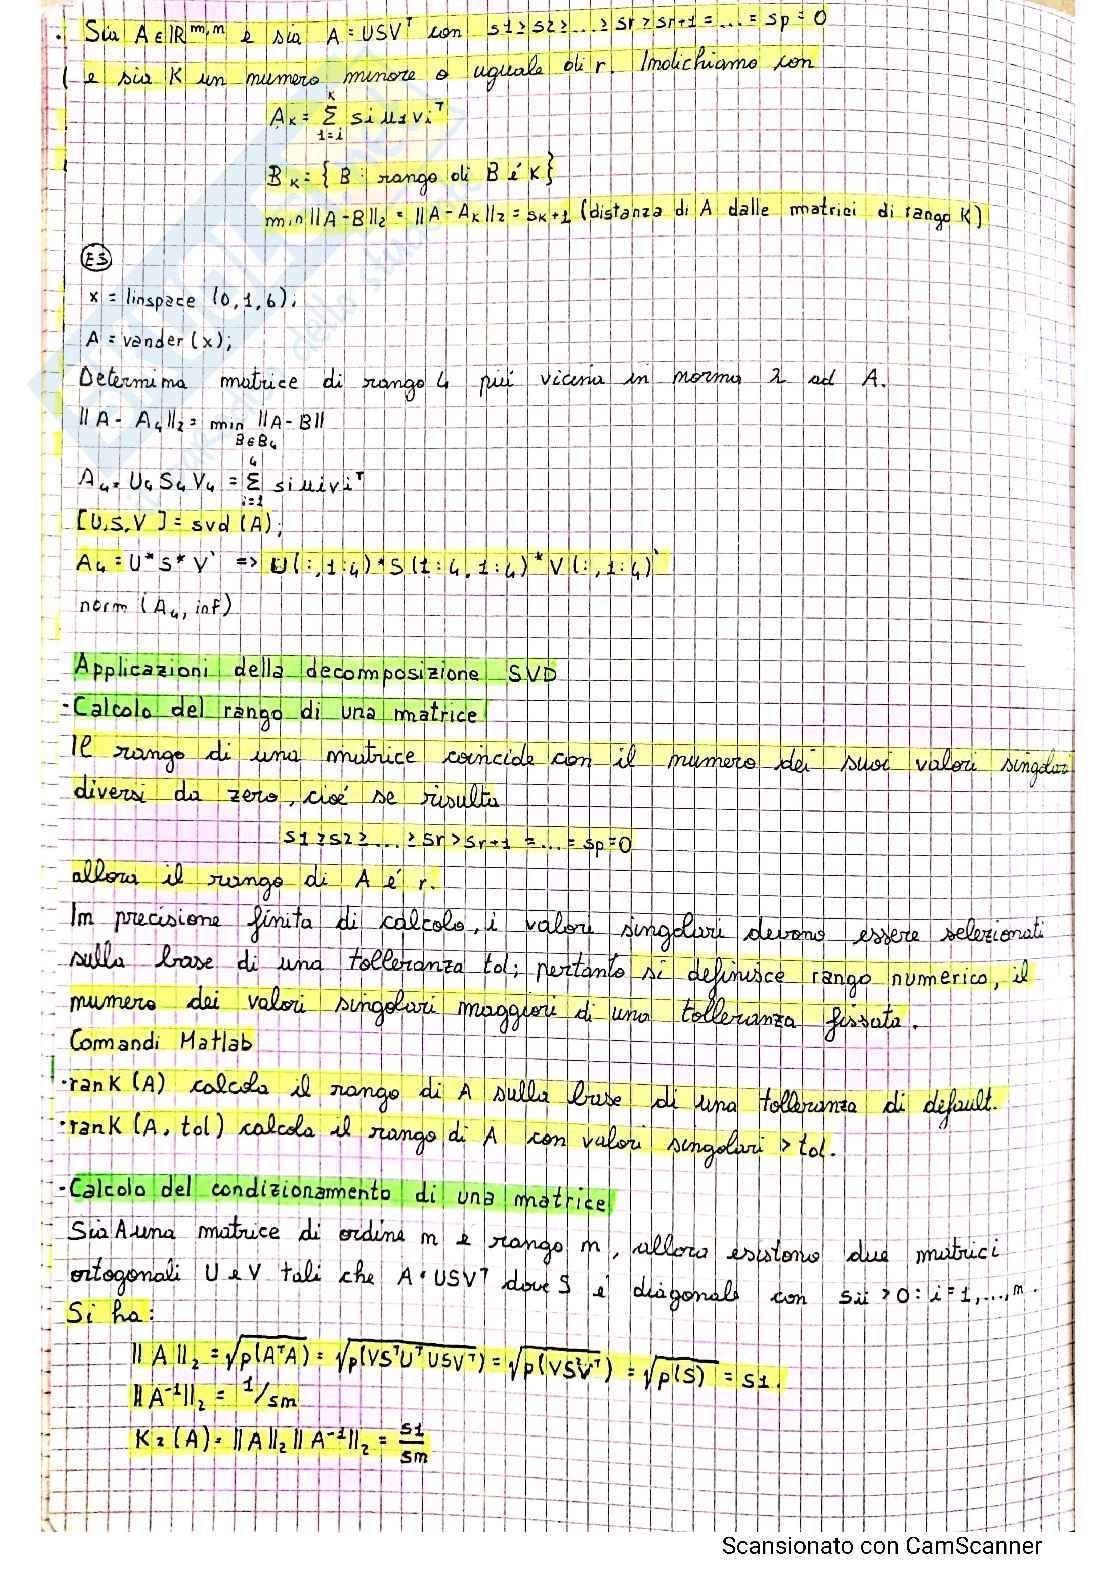 . Sia A ∈ IR^m,m e sia A = USV^T con s1 ≥ s2 ≥ ... ≥ sr > sr+1 = ... = sp = 0
e sia K un numero minore o uguale di r. Indichiamo con
AK = K Σ 1=i si ui vi^T
BK = { B : rango di B é K }
min ||A-B||2 = ||A-AK||2 = sK+1 (distanza di A dalle matrici di rango K)
ES
x = linspace (0,1,6);
A = vander (x);
Determina matrice di rango 4 piú vicina in norma 2 ad A.
||A - A4||2 = min B∈B4 ||A-B||
A4 = U4 S4 V4 = 4 Σ i=1 si ui vi^T
[U,S,V] = svd (A);
A4 = U*S*V' => U(:,1:4)*S(1:4,1:4)*V(:,1:4)'
norm (A4, inf)
Applicazioni della decomposizione SVD
- Calcolo del rango di una matrice
Il rango di una matrice coincide con il numero dei suoi valori singolari
diversi da zero, cioé se risulta
s1 ≥ s2 ≥ ... ≥ sr > sr+1 = ... = sp = 0
allora il rango di A é r.
In precisione finita di calcolo, i valori singolari devono essere selezionati
sulla base di una tolleranza tol; pertanto si definisce rango numerico, il
numero dei valori singolari maggiori di una tolleranza fissata.
Comandi Matlab
· ranK (A) calcola il rango di A sulla base di una tolleranza di default.
· ranK (A, tol) calcola il rango di A con valori singolari > tol.
- Calcolo del condizionamento di una matrice
Sia A una matrice di ordine m e rango m, allora esistono due matrici
ortogonali U e V tali che A = USV^T dove S é diagonale con sii > 0 : i = 1,...,m.
Si ha:
||A||2 = √p(A^TA) = √p(VS^TU^TUSV^T) = √p(VSV^T) = √p(S) = s1.
||A^-1||2 = 1/sm
K2(A) = ||A||2 ||A^-1||2 = s1/sm
Scansionato con CamScanner